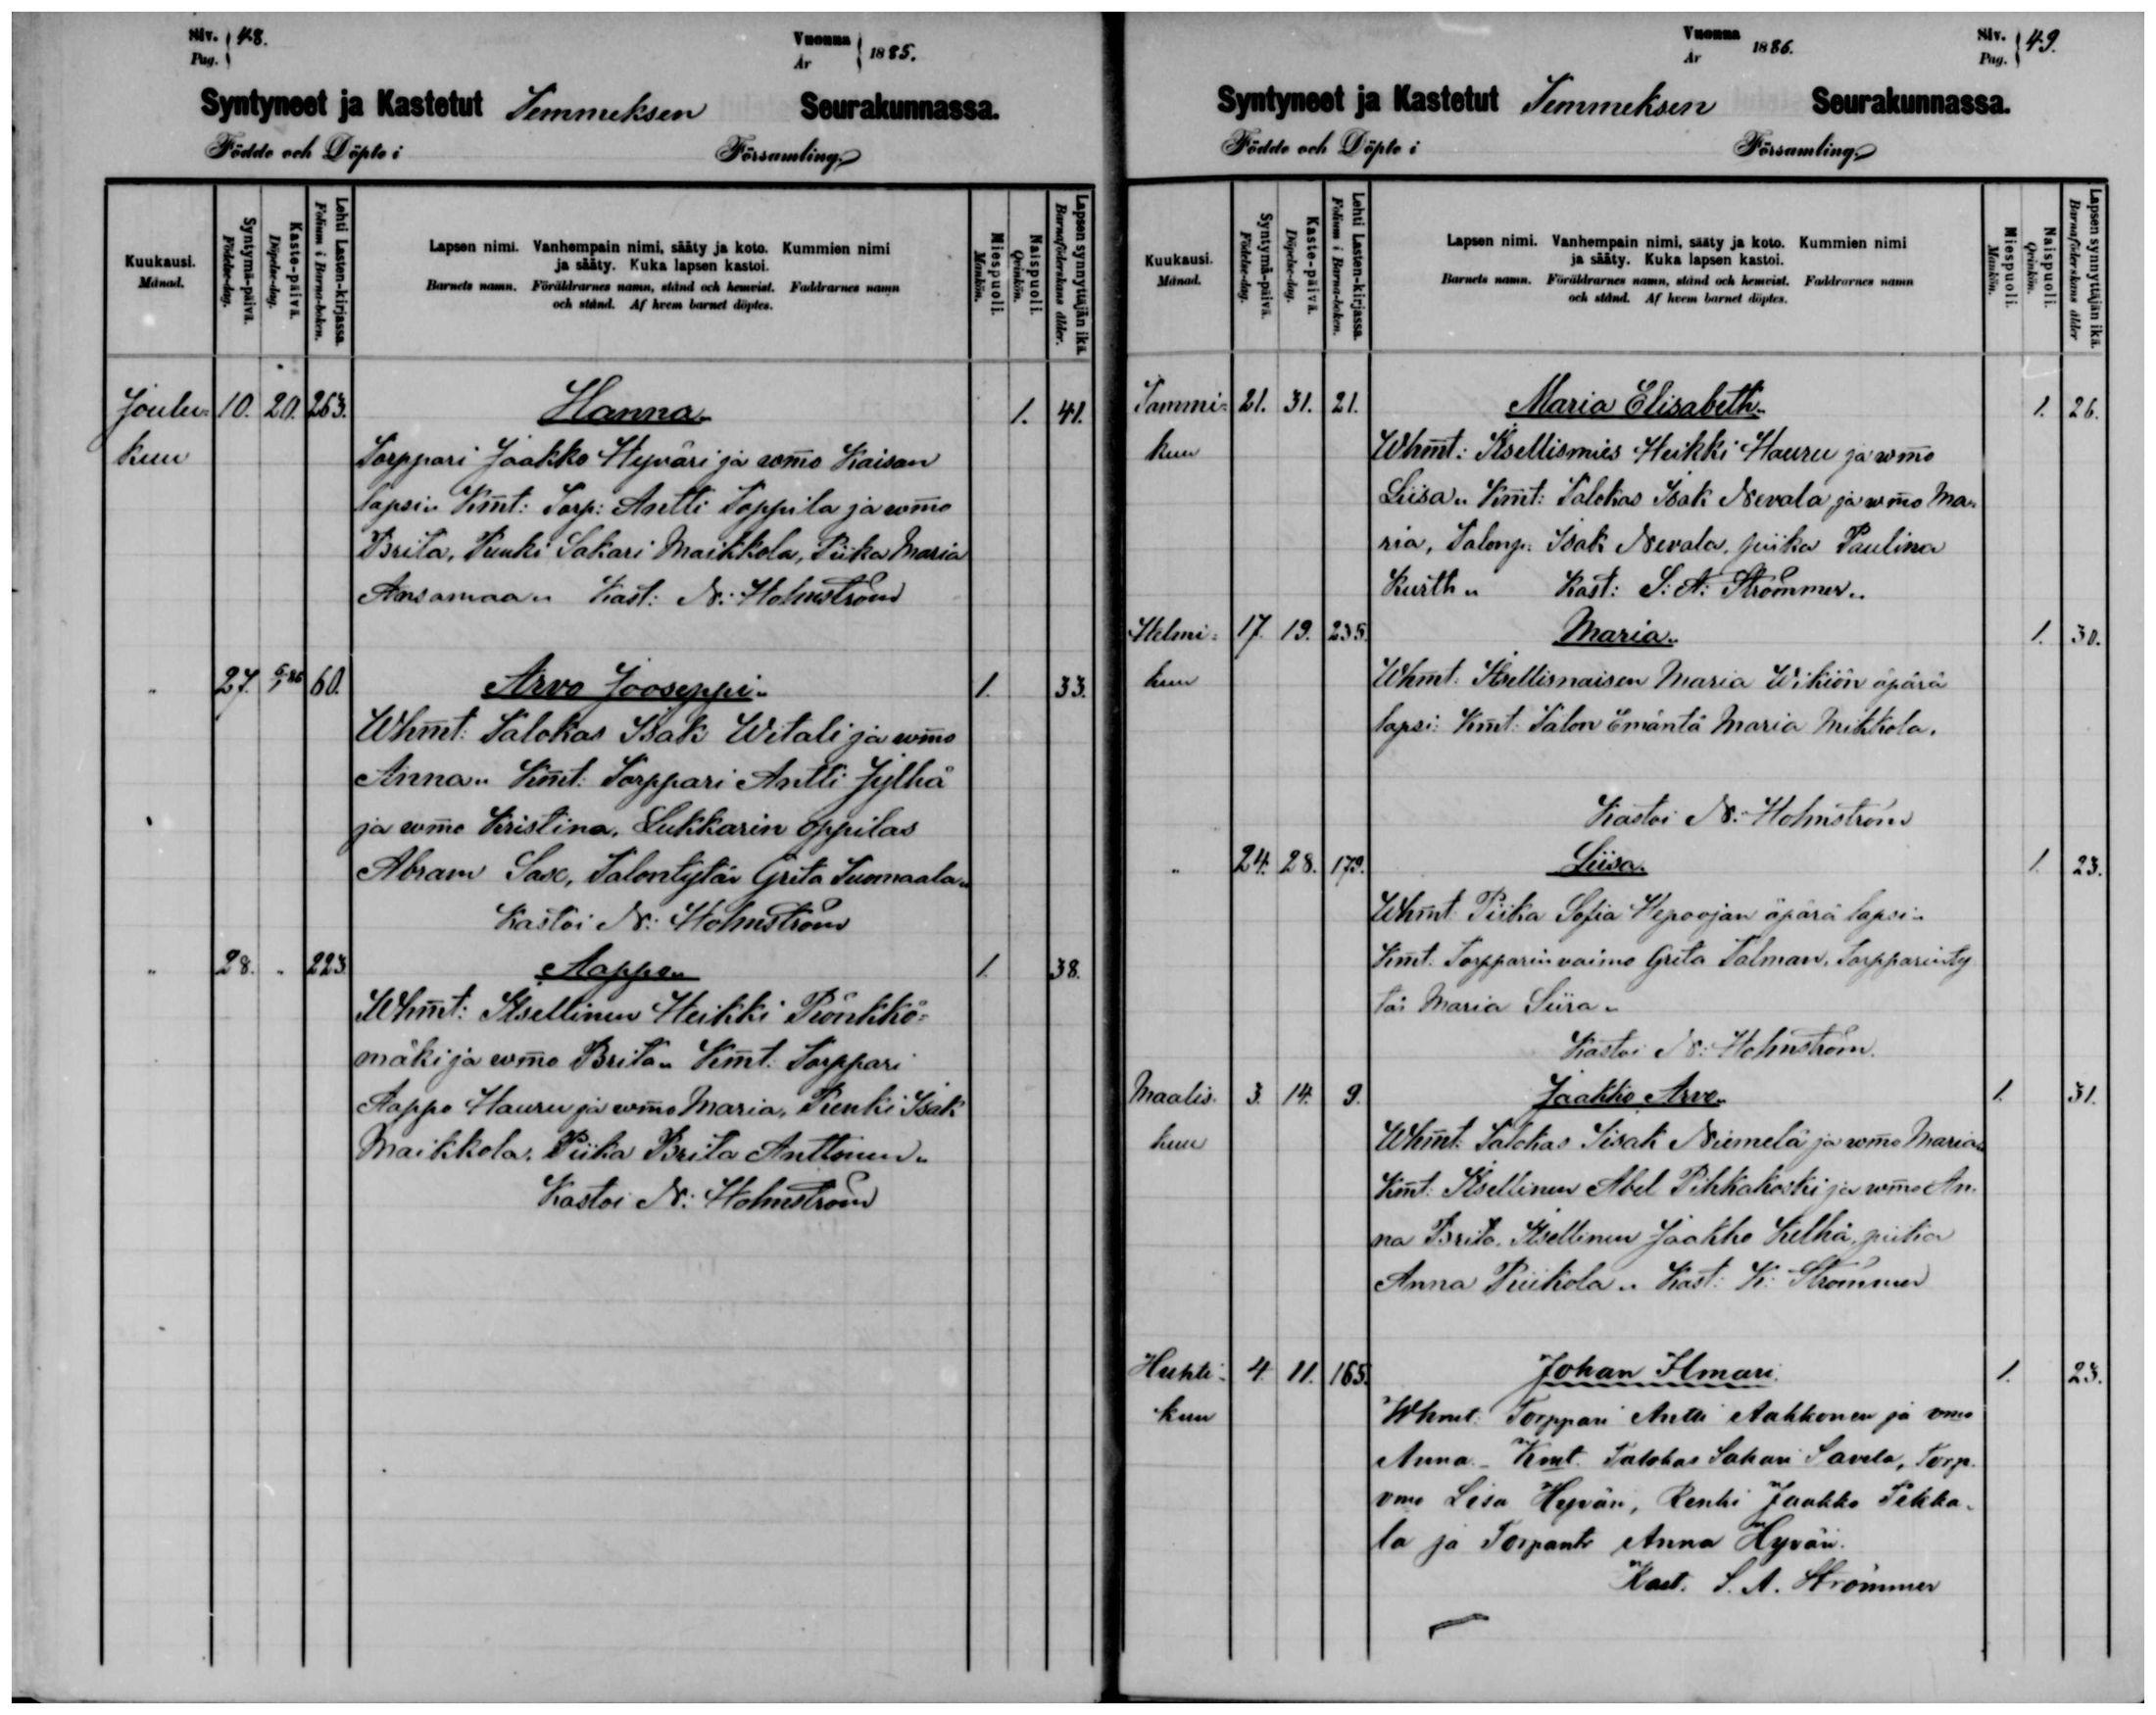 Siv. 48.
Pag.
Vuonna 1885.
År
Syntyneet ja Kastetut Temmeksen Seurakunnassa.
Födde och Döpte i Församling.
Kuukausi.
Månad.
Syntymä-päivä.
Födelse-dag.
Kaste-päivä.
Döpelse-dag.
Lehti Lasten-kirjassa.
Folium i Barna-boken.
Lapsen nimi. Vanhempain nimi, sääty ja koto. Kummien nimi
ja sääty. Kuka lapsen kastoi.
Barnets namn. Föräldrarnes namn, stånd och hemvist. Faddrarnes namn
och stånd. Af hvem barnet döptes.
Miespuoli.
Mankön.
Naispuoli.
Qvinkön.
Lapsen synnyttäjän ikä.
Barnaföderskans ålder.
Joulu- 10. 20. 263. Hanna 1. 41.
kuu Torppari Jaakko Hyväri ja wmo Kaisan
lapsi Kmt: Torp: Antti Toppila ja wmo
Brita, Renki Sakari Maikkola, Piika Maria
Ansamaa Kast: N: Holmström
" 27. 6/1 86 60. Arvo Jooseppi 1. 33.
Whmt: Talokas Isak Witali ja wmo
Anna Kmt: Torppari Antti Jylhä
ja wmo Kristina, Lukkarin oppilas
Abram Sax, Talontytär Greta Tuomaala
Kastoi N: Holmström
" 28. " 223. Aappo 1. 38.
Whmt: Itsellinen Heikki Pönkkö-
mäki ja wmo Brita Kmt: Torppari
Aappo Hauru ja wmo Maria, Renki Isak
Maikkola, Piika Brita Anttonen
Kastoi N: Holmström
Vuonna 1886.
År
Siv. 49.
Pag.
Syntyneet ja Kastetut Temmeksen Seurakunnassa.
Födde och Döpte i Församling.
Kuukausi.
Månad.
Syntymä-päivä.
Födelse-dag.
Kaste-päivä.
Döpelse-dag.
Lehti Lasten-kirjassa.
Folium i Barna-boken.
Lapsen nimi. Vanhempain nimi, sääty ja koto. Kummien nimi
ja sääty. Kuka lapsen kastoi.
Barnets namn. Föräldrarnes namn, stånd och hemvist. Faddrarnes namn
och stånd. Af hvem barnet döptes.
Miespuoli.
Mankön.
Naispuoli.
Qvinkön.
Lapsen synnyttäjän ikä.
Barnaföderskans ålder
Tammi- 21. 31. 21. Maria Elisabeth 1. 26.
kuu Whmt: Itsellismies Heikki Hauru ja wmo
Liisa Kmt: Talokas Isak Nevala ja wmo Ma-
ria, Talonp: Isak Nevala, piika Paulina
Kurth Kast: S: A: Strömmer
Helmi- 17. 19. 235. Maria 1. 30.
kuu Whmt: Itsellisnaisen Maria Wikiön äpärä
lapsi: Kmt: Talon Emäntä Maria Mikkola.
Kastoi N: Holmström
" 24. 28. 179. Liisa 1. 23.
Whmt: Piika Sofia Hepoojan äpärä lapsi
Kmt: Torpparin vaimo Greta Talman, Torpparinty
tär Maria Siira
Kastoi N: Holmström.
Maalis- 3. 14. 9. Jaakko Arvo 1. 31.
kuu Whmt: Talokas Iisak Niemelä ja wmo Maria
Kmt: Itsellinen Abel Pihkakoski ja wmo An-
na Brita, Itsellinen Jaakko Kelhä, piika
Anna Piikola Kast: K: Strömmer
Huhti- 4. 11. 165. Johan Ilmari. 1. 23.
kuu Whmt: Torppari Antti Aakkonen ja vmo
Anna. Kmt. Talokas Sakari Savela, Torp.
vmo Lisa Hyväri, Renki Jaakko Pekka-
la ja Anna Hyväri.
Kast. S. A. Strömmer